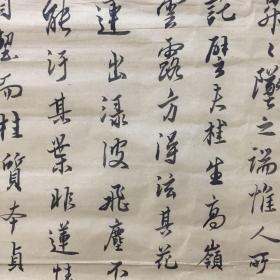 昇〻墜之端惟人所
託譬夫桂生高嶺
雲露方得泫其花
蓮出淥波飛塵不
能汙其葉非蓮性
自潔而桂質本貞